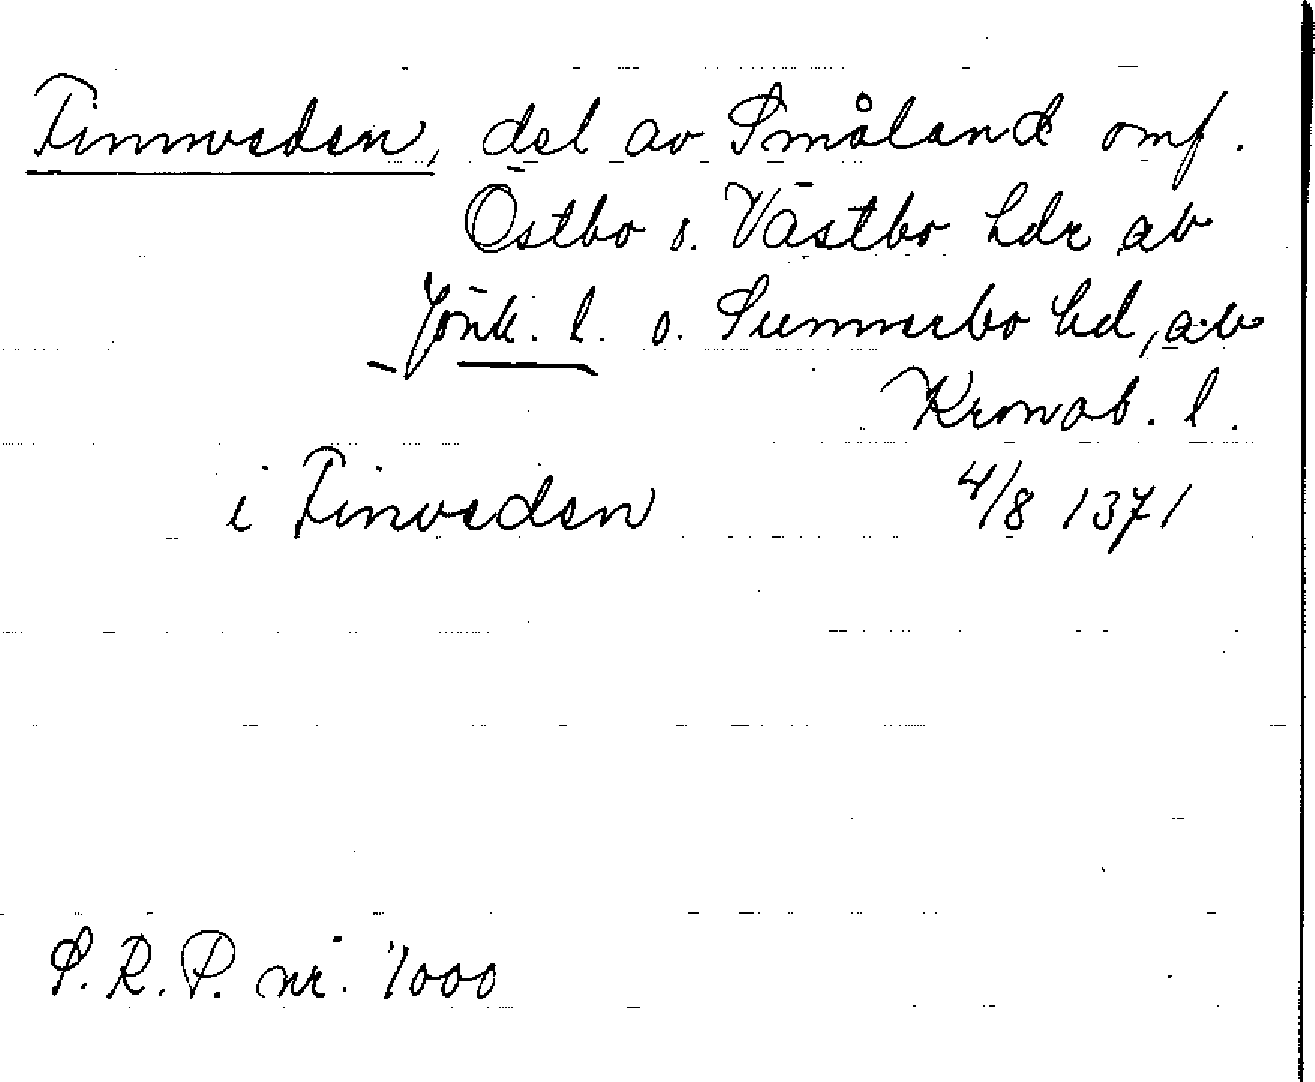 Finnveden, del av Småland omf.
Östbo o. Västbo hdr av
Jönk. l. o. Sunnerbo hd, av
Kronob. l.
i Finveden 4/8 1371
S. R. P. nr. 1000